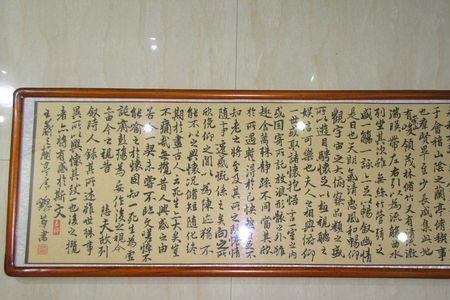 于會稽山陰之蘭亭脩稧事
也群賢畢至少長咸集此地
有崇領茂林脩竹又有清流激
湍暎帶左右引以為流觴曲水
列坐其次雖無絲竹管弦之
盛一觴一詠亦足以暢敘幽情
是日也天朗氣清惠風和暢仰
觀宇宙之大俯察品類之盛
所以遊目騁懷足以極視聽之
娛信可樂也夫人之相與俯仰
一世或取諸懷抱悟言一室之內
或因寄所託放浪形骸之外雖
趣舍萬殊靜躁不同當其欣
於所遇暫得於己快然自足不
知老之將至及其所之既惓情
隨事遷感慨係之矣向之所
欣俛仰之間以為陳迹猶不
能不以之興懷況脩短隨化終
期於盡古人云死生亦大矣豈
不痛哉每攬昔人興感之由
若合一契未嘗不臨文嗟悼不
能喻之於懷固知一死生為虛
誕齊彭殤為妄作後之視今
亦由今之視昔悲夫故列
敘時人錄其所述雖世殊事
異所以興懷其致一也後之攬
者亦將有感於斯文
王羲之蘭亭序